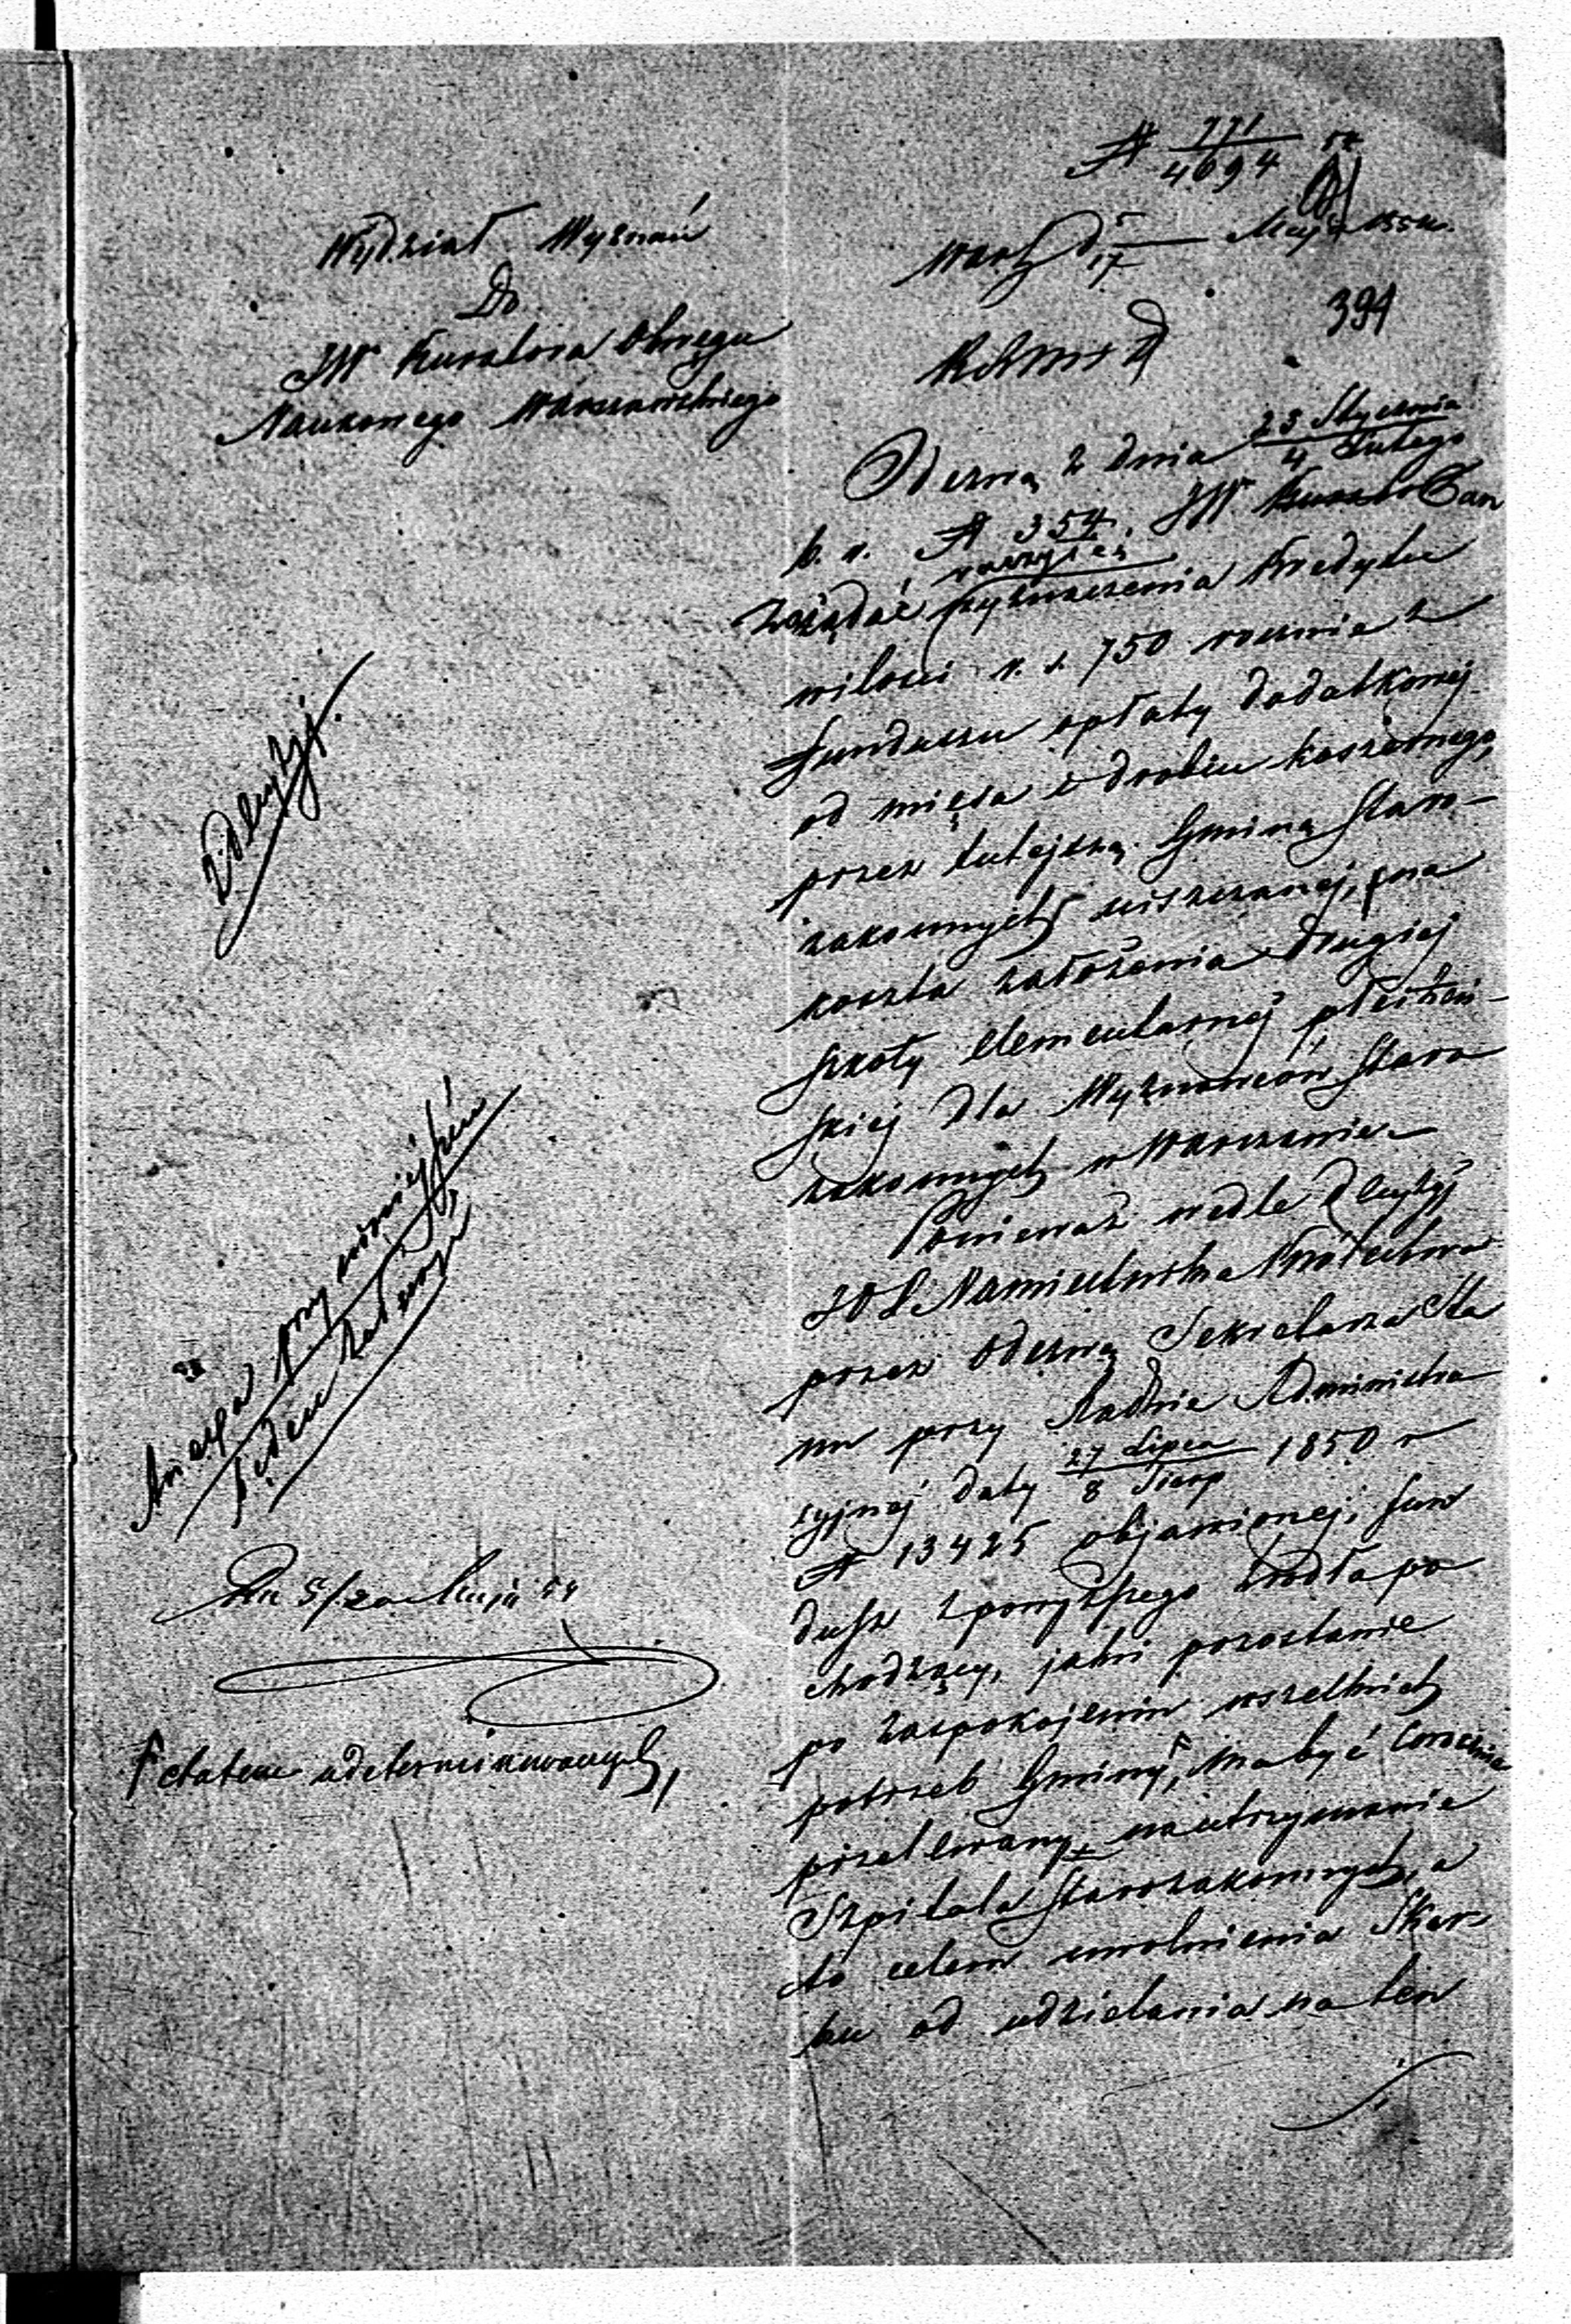 № 771/4694
Wydział Wyznań
Do
JW Kuratora Okręgu
Naukowego Warszawskiego
5/17 Maja 1854.
391
Odezwą z dnia 23 Stycznia/4 Lutego
b. r. № 354. JW Pan
zażądać raczyłeś wyznaczenia kredytu
w ilości r. s. 750 rocznie z
funduszu opłaty dodatkowej
od mięsa i drobiu koszernego,
przez tutejszą Gminę Staro-
zakonnych uiszczanej, na
koszta założenia drugiej
szkoły elementarnej płci żeń-
skiej dla Wyznawców Staro
zakonnych w Warszawie.
Ponieważ wedle decyzyj
JO X Namiestnika Królestwa
przez odezwę Sekretarza Sta
nu przy Radzie Administra
cyjnej daty 27 Lipca/8 Sierp 1850 r
№ 13425 objawionej, fun
dusz z powyższego źródła po
chodzący, jaki pozostanie
po zaspokojeniu wszelkich
potrzeb Gminy, ma być corocznie
przelewany na utrzymanie
Szpitala Starozakonnych, a
to celem uwolnienia Skar-
bu od udzielania na ten
przy niniejszem
będące załączyć
5/20 Maja 54
etatem udeterminowanych,